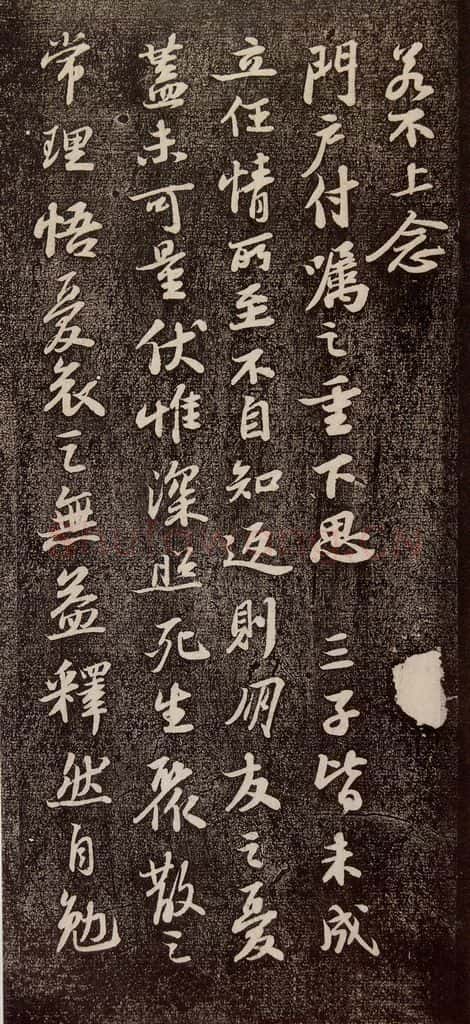 若不上念
門户付囑之重下思 三子皆未成
立任情所至不自知返則朋友之憂
蓋未可量伏惟深照死生聚散之
常理悟憂哀之無益釋然自勉